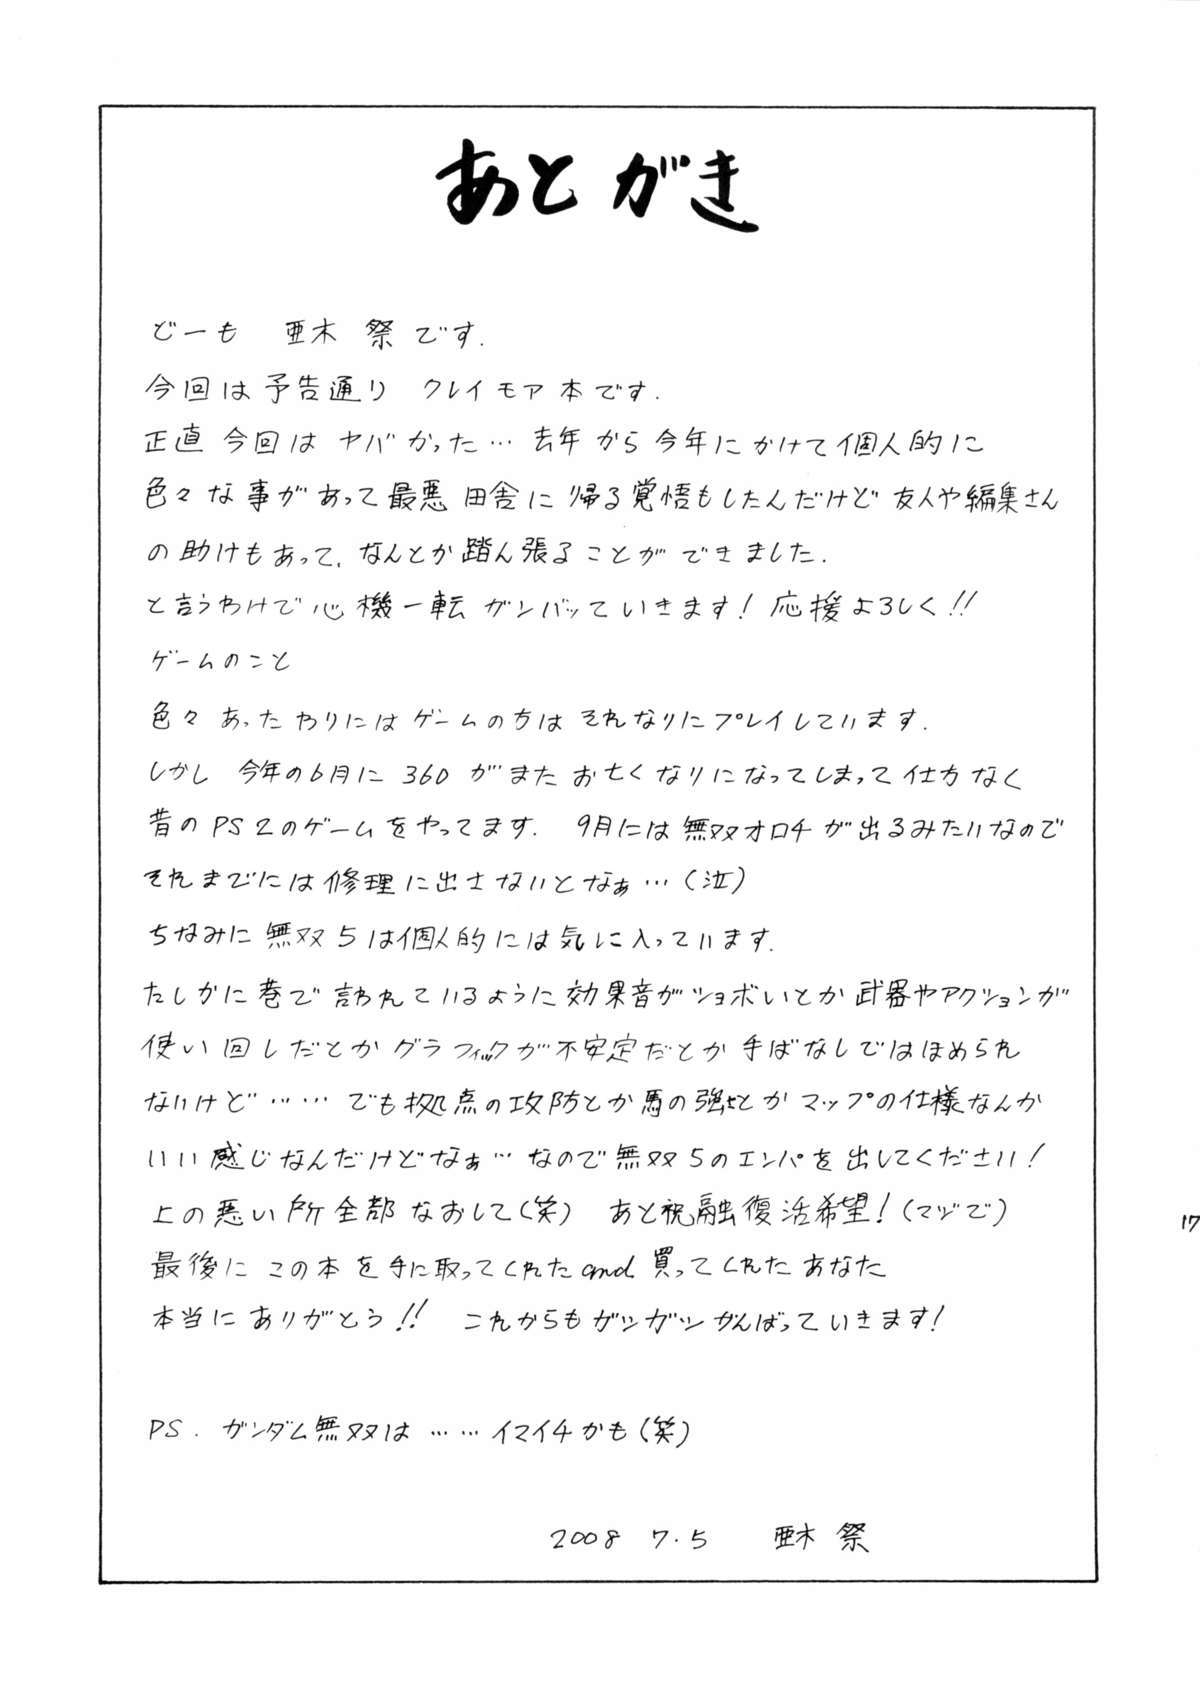 あとがき
どーも 亜木 祭です.
今回は予告通り クレイモア本です.
正直今回は ヤバかった…去年から今年にかけて個人的に
色々な事があって最悪田舎に帰る覚悟もしたんだけど友人や編集さん
の助けもあって、なんとか踏ん張ることができました.
と言うわけで心機一転ガンバッていきます!応援よろしく!!
ゲームのこと
色々あったわりにはゲームの方はそれなりにプレイしています.
しかし 今年の6月に 360 がまたお亡くなりになってしまって仕方なく
昔のPS2のゲームをやってます. 9月には無双オロチが出るみたいなので
それまでには修理に出さないとなぁ…(泣)
ちなみに無双5は個人的には気に入っています.
たしかに巷で言われているように効果音がショボいとか武器やアクションが
使い回しだとかグラフィックが不安定だとか手ばなしではほめられ
ないけど……でも拠点の攻防とか馬の強さとかマップの仕様なんか
いい感じなんだけどなぁ…なので無双5のエンパを出してください!
上の悪い所全部なおして(笑) あと祝融復活希望!(マヅで)
最後にこの本を手に取ってくれたand買ってくれたあなた
本当にありがとう!! これからもガツガツがんばっていきます!
PS. ガンダム無双は……イマイチかも(笑)
2008 7.5 亜木 祭
17